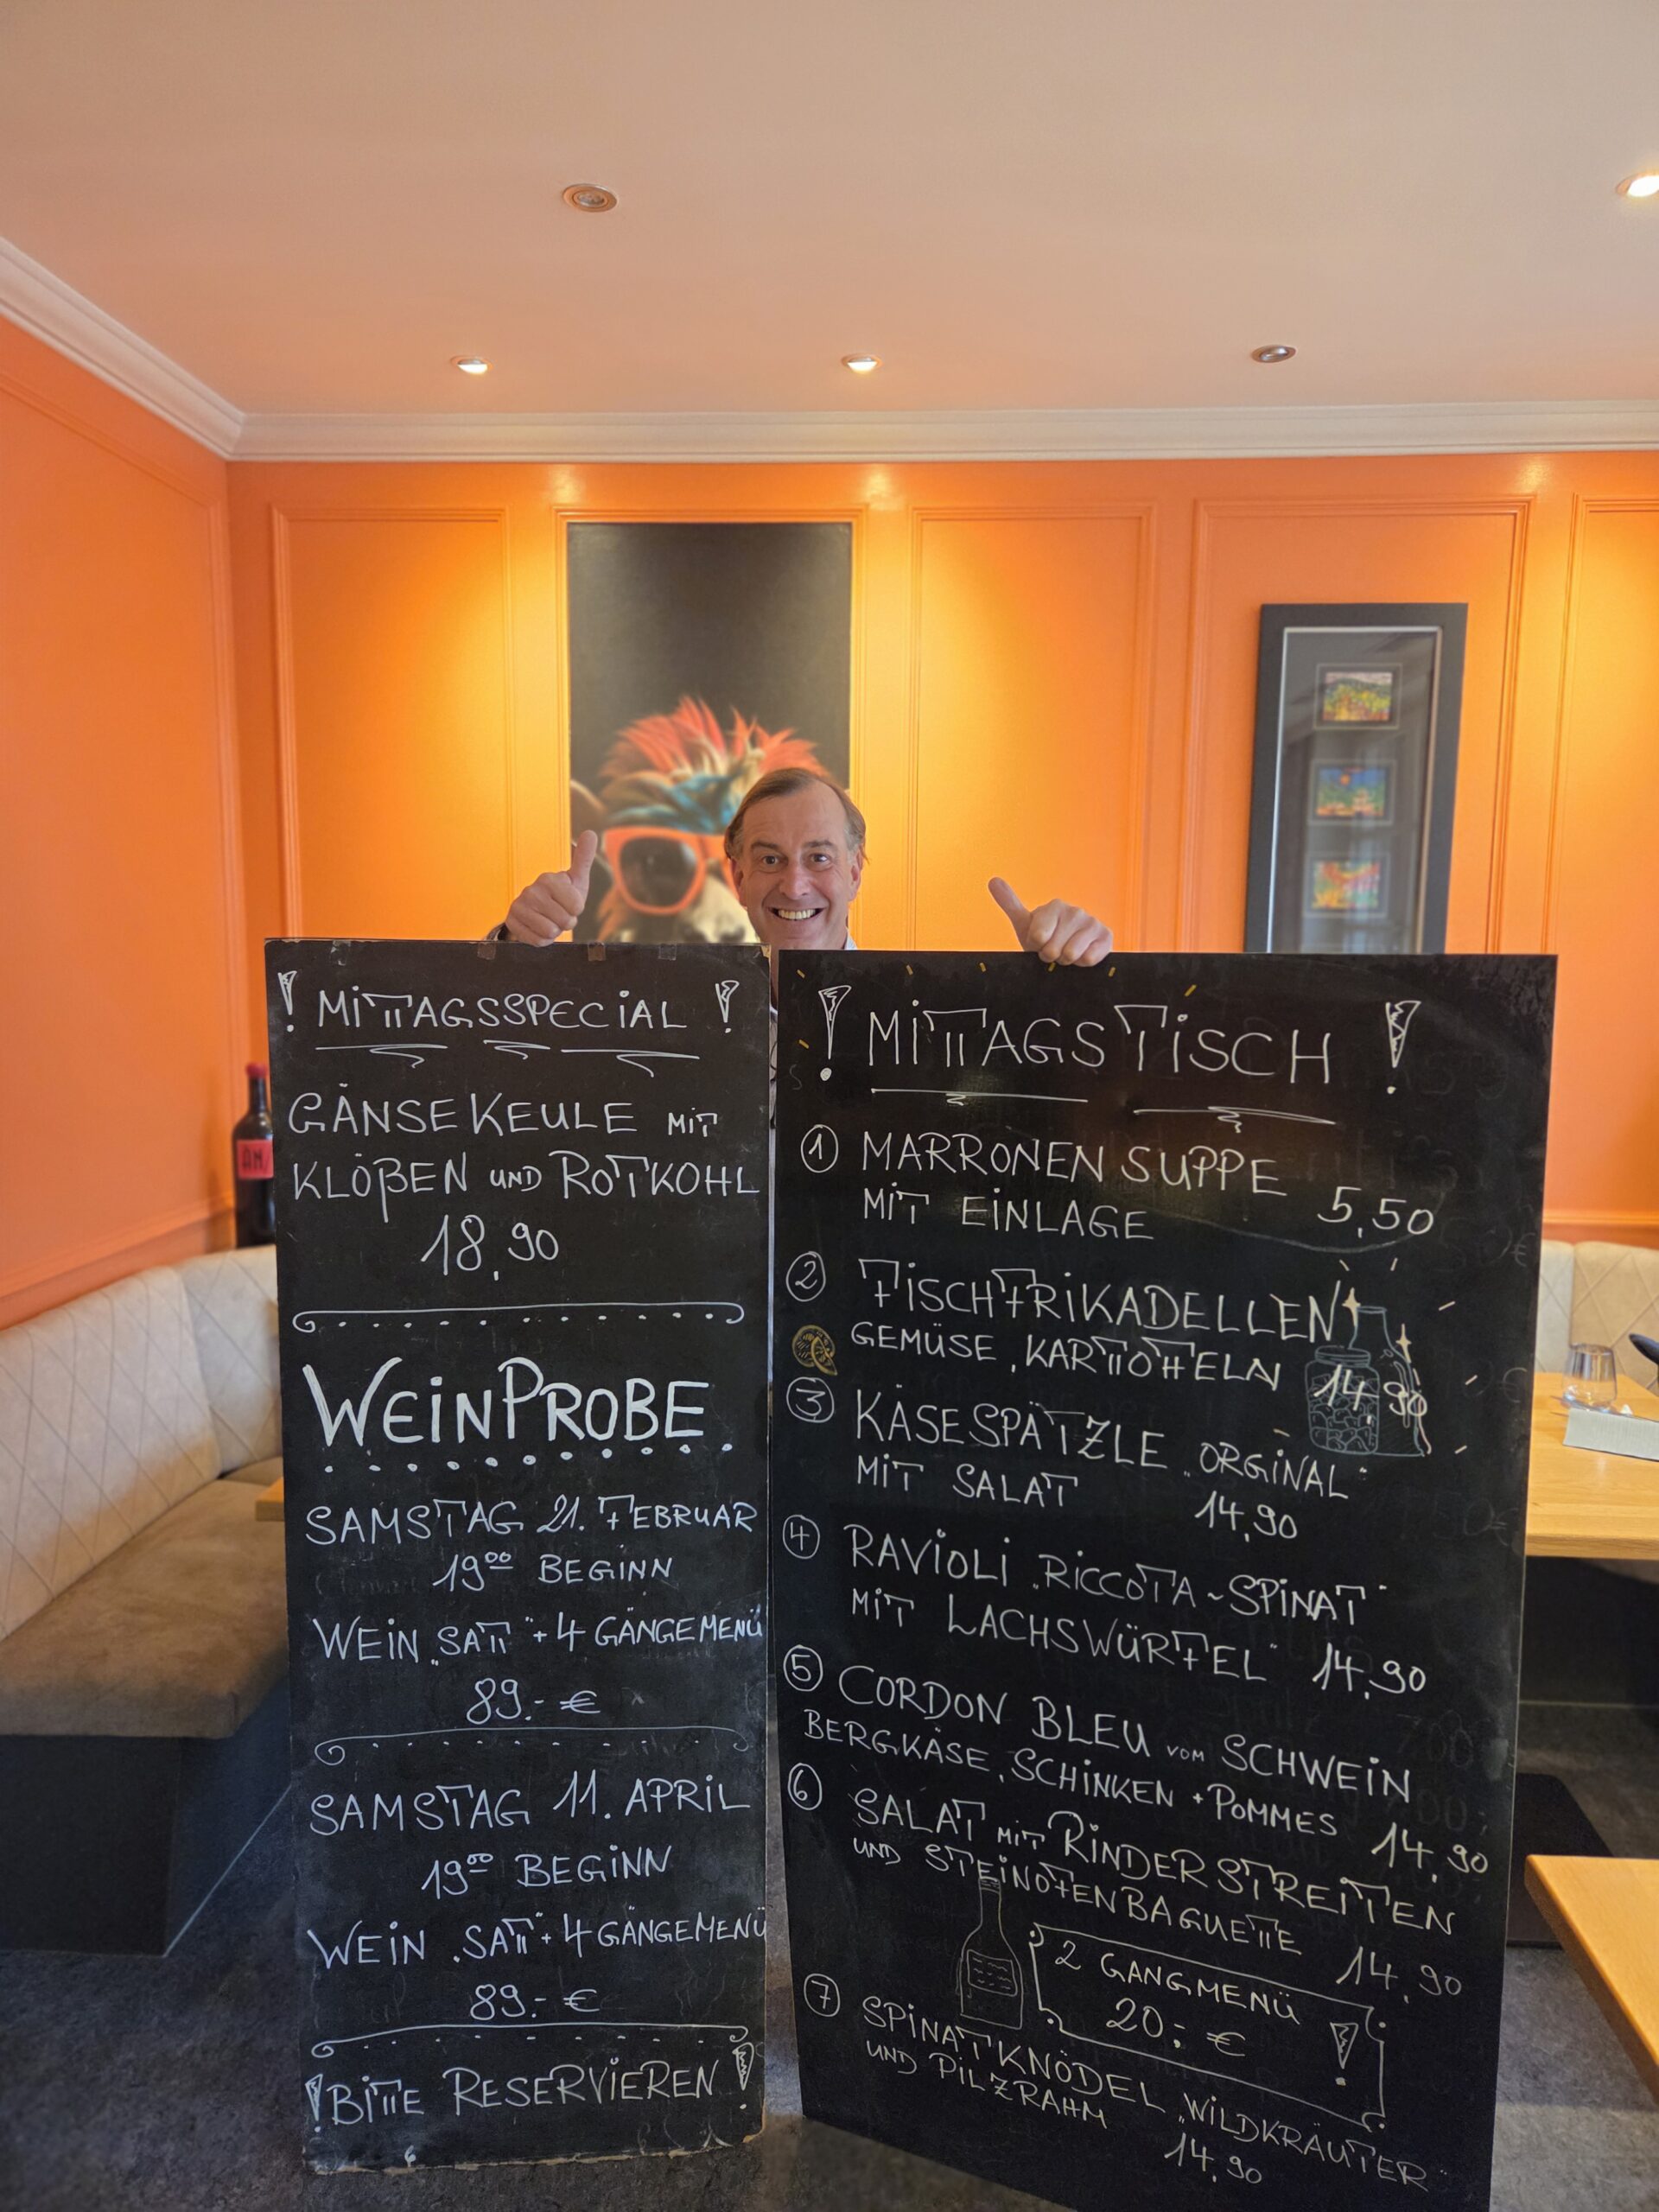 ! MITTAGSSPECIAL !
GÄNSEKEULE MIT
KLÖßEN UND ROTKOHL
18,90
WEINPROBE
SAMSTAG 21. FEBRUAR
19⁰⁰ BEGINN
WEIN „SATT" + 4 GÄNGEMENÜ
89.- €
SAMSTAG 11. APRIL
19⁰⁰ BEGINN
WEIN „SATT" + 4 GÄNGEMENÜ
89.- €
! BITTE RESERVIEREN !
! MITTAGSTISCH !
① MARRONEN SUPPE
MIT EINLAGE 5,50
② FISCHFRIKADELLEN
GEMÜSE, KARTOFFELN 14,90
③ KÄSESPÄTZLE „ORGINAL"
MIT SALAT 14,90
④ RAVIOLI „RICCOTA~SPINAT"
MIT LACHSWÜRFEL" 14,90
⑤ CORDON BLEU VOM SCHWEIN
BERGKÄSE, SCHINKEN + POMMES 14,90
⑥ SALAT MIT RINDERSTREIFFEN
UND STEINOFENBAGUETTE 14,90
2 GANGMENÜ
20,- € !
⑦ SPINATKNÖDEL „WILDKRÄUTER"
UND PILZRAHM 14,90
AN/